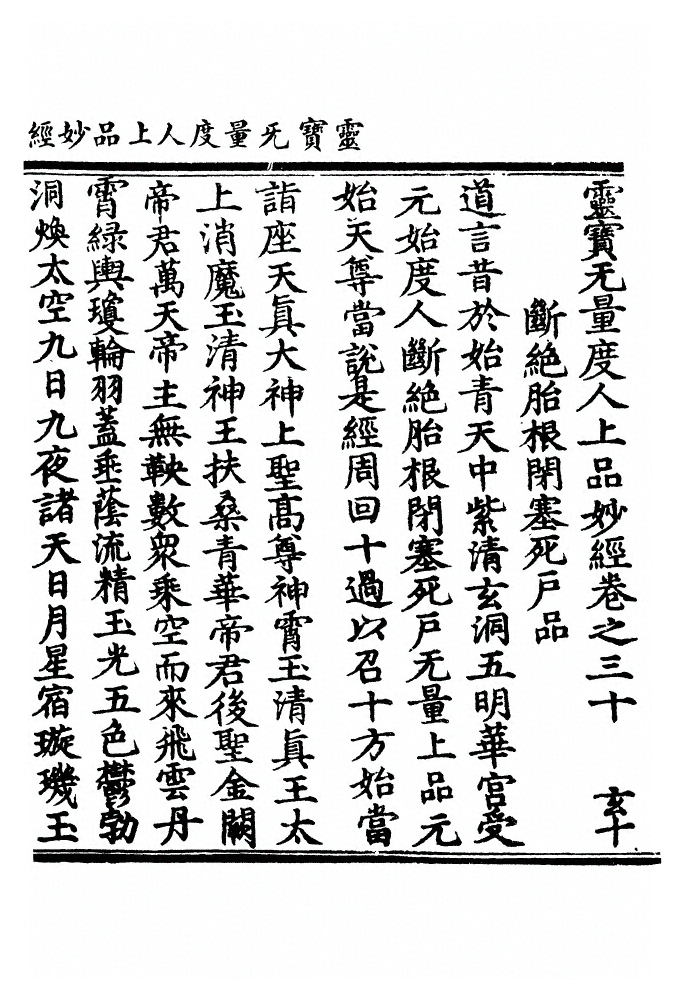 靈寶无量度人上品妙經
靈寶无量度人上品妙經卷之三十　玄十
斷絶胎根閉塞死户品
道言昔於始青天中紫清玄洞五明華宮受
元始度人斷絶胎根閉塞死户无量上品元
始天尊當説是經周回十過以召十方始當
詣座天眞大神上聖高尊神霄玉清眞王太
上消魔玉清神王扶桑青華帝君後聖金闕
帝君萬天帝主無鞅數衆乘空而來飛雲丹
霄緑輿瓊輪羽蓋垂蔭流精玉光五色鬱勃
洞煥太空九日九夜諸天日月星宿璇璣玉